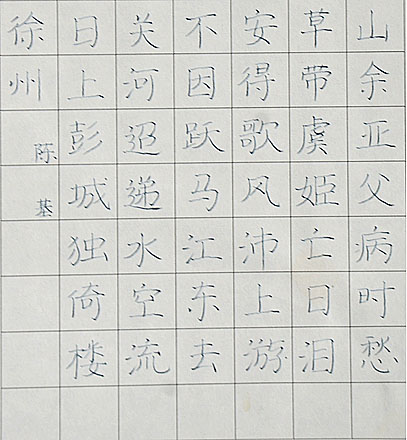 徐州
陈基
日上彭城独倚楼
关河迢递水空流
不因跃马江东去
安得歌风沛上游
草带虞姬亡日泪
山余亚父病时愁